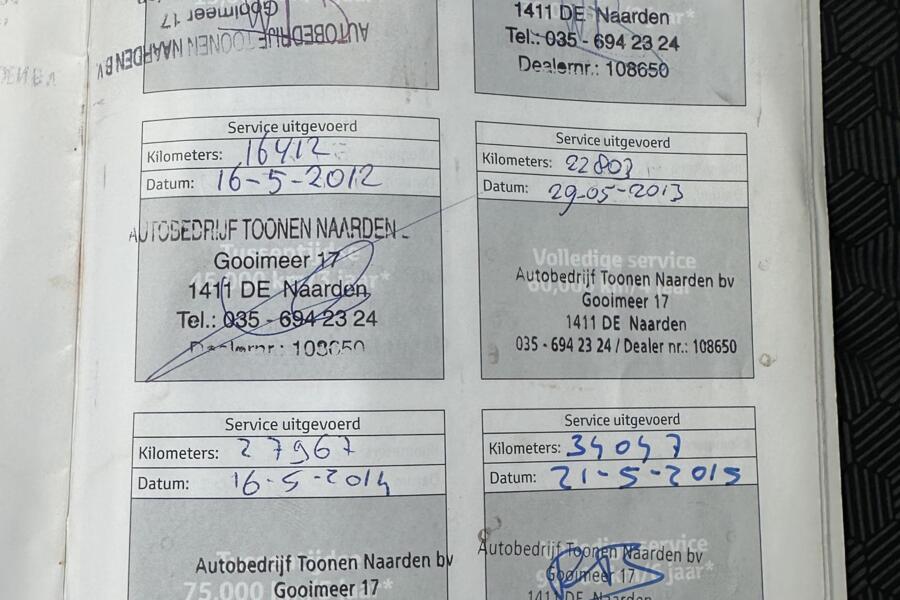 Gooimeer 17
AUTOBEDRIJF TOONEN NAARDEN B.V.
1411 DE Naarden
Tel.: 035 - 694 23 24
Dealernr.: 108650
Service uitgevoerd
Kilometers: 16412
Datum: 16-5-2012
AUTOBEDRIJF TOONEN NAARDEN
Gooimeer 17
1411 DE Naarden
Tel.: 035 - 694 23 24
Dealernr.: 108650
Service uitgevoerd
Kilometers: 22803
Datum: 29-05-2013
Volledige service
Autobedrijf Toonen Naarden bv
Gooimeer 17
1411 DE Naarden
035 - 694 23 24 / Dealer nr.: 108650
Service uitgevoerd
Kilometers: 27967
Datum: 16-5-2014
Autobedrijf Toonen Naarden bv
75.000
Gooimeer 17
Service uitgevoerd
Kilometers: 34047
Datum: 21-5-2015
service
Autobedrijf Toonen Naarden bv
Gooimeer 17
jaar*
1411 DE Naarden